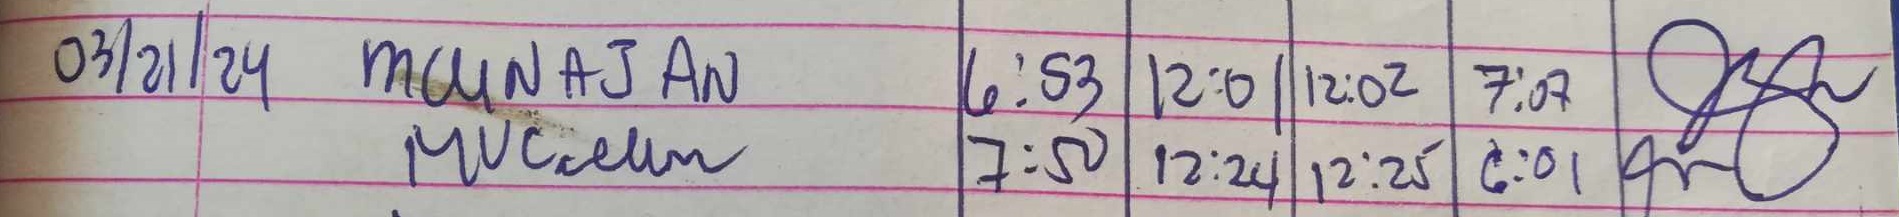 03/21/24 MCUNAJAN 6:53 12:01 12:02 7:07
7:50 12:24 12:25 6:01